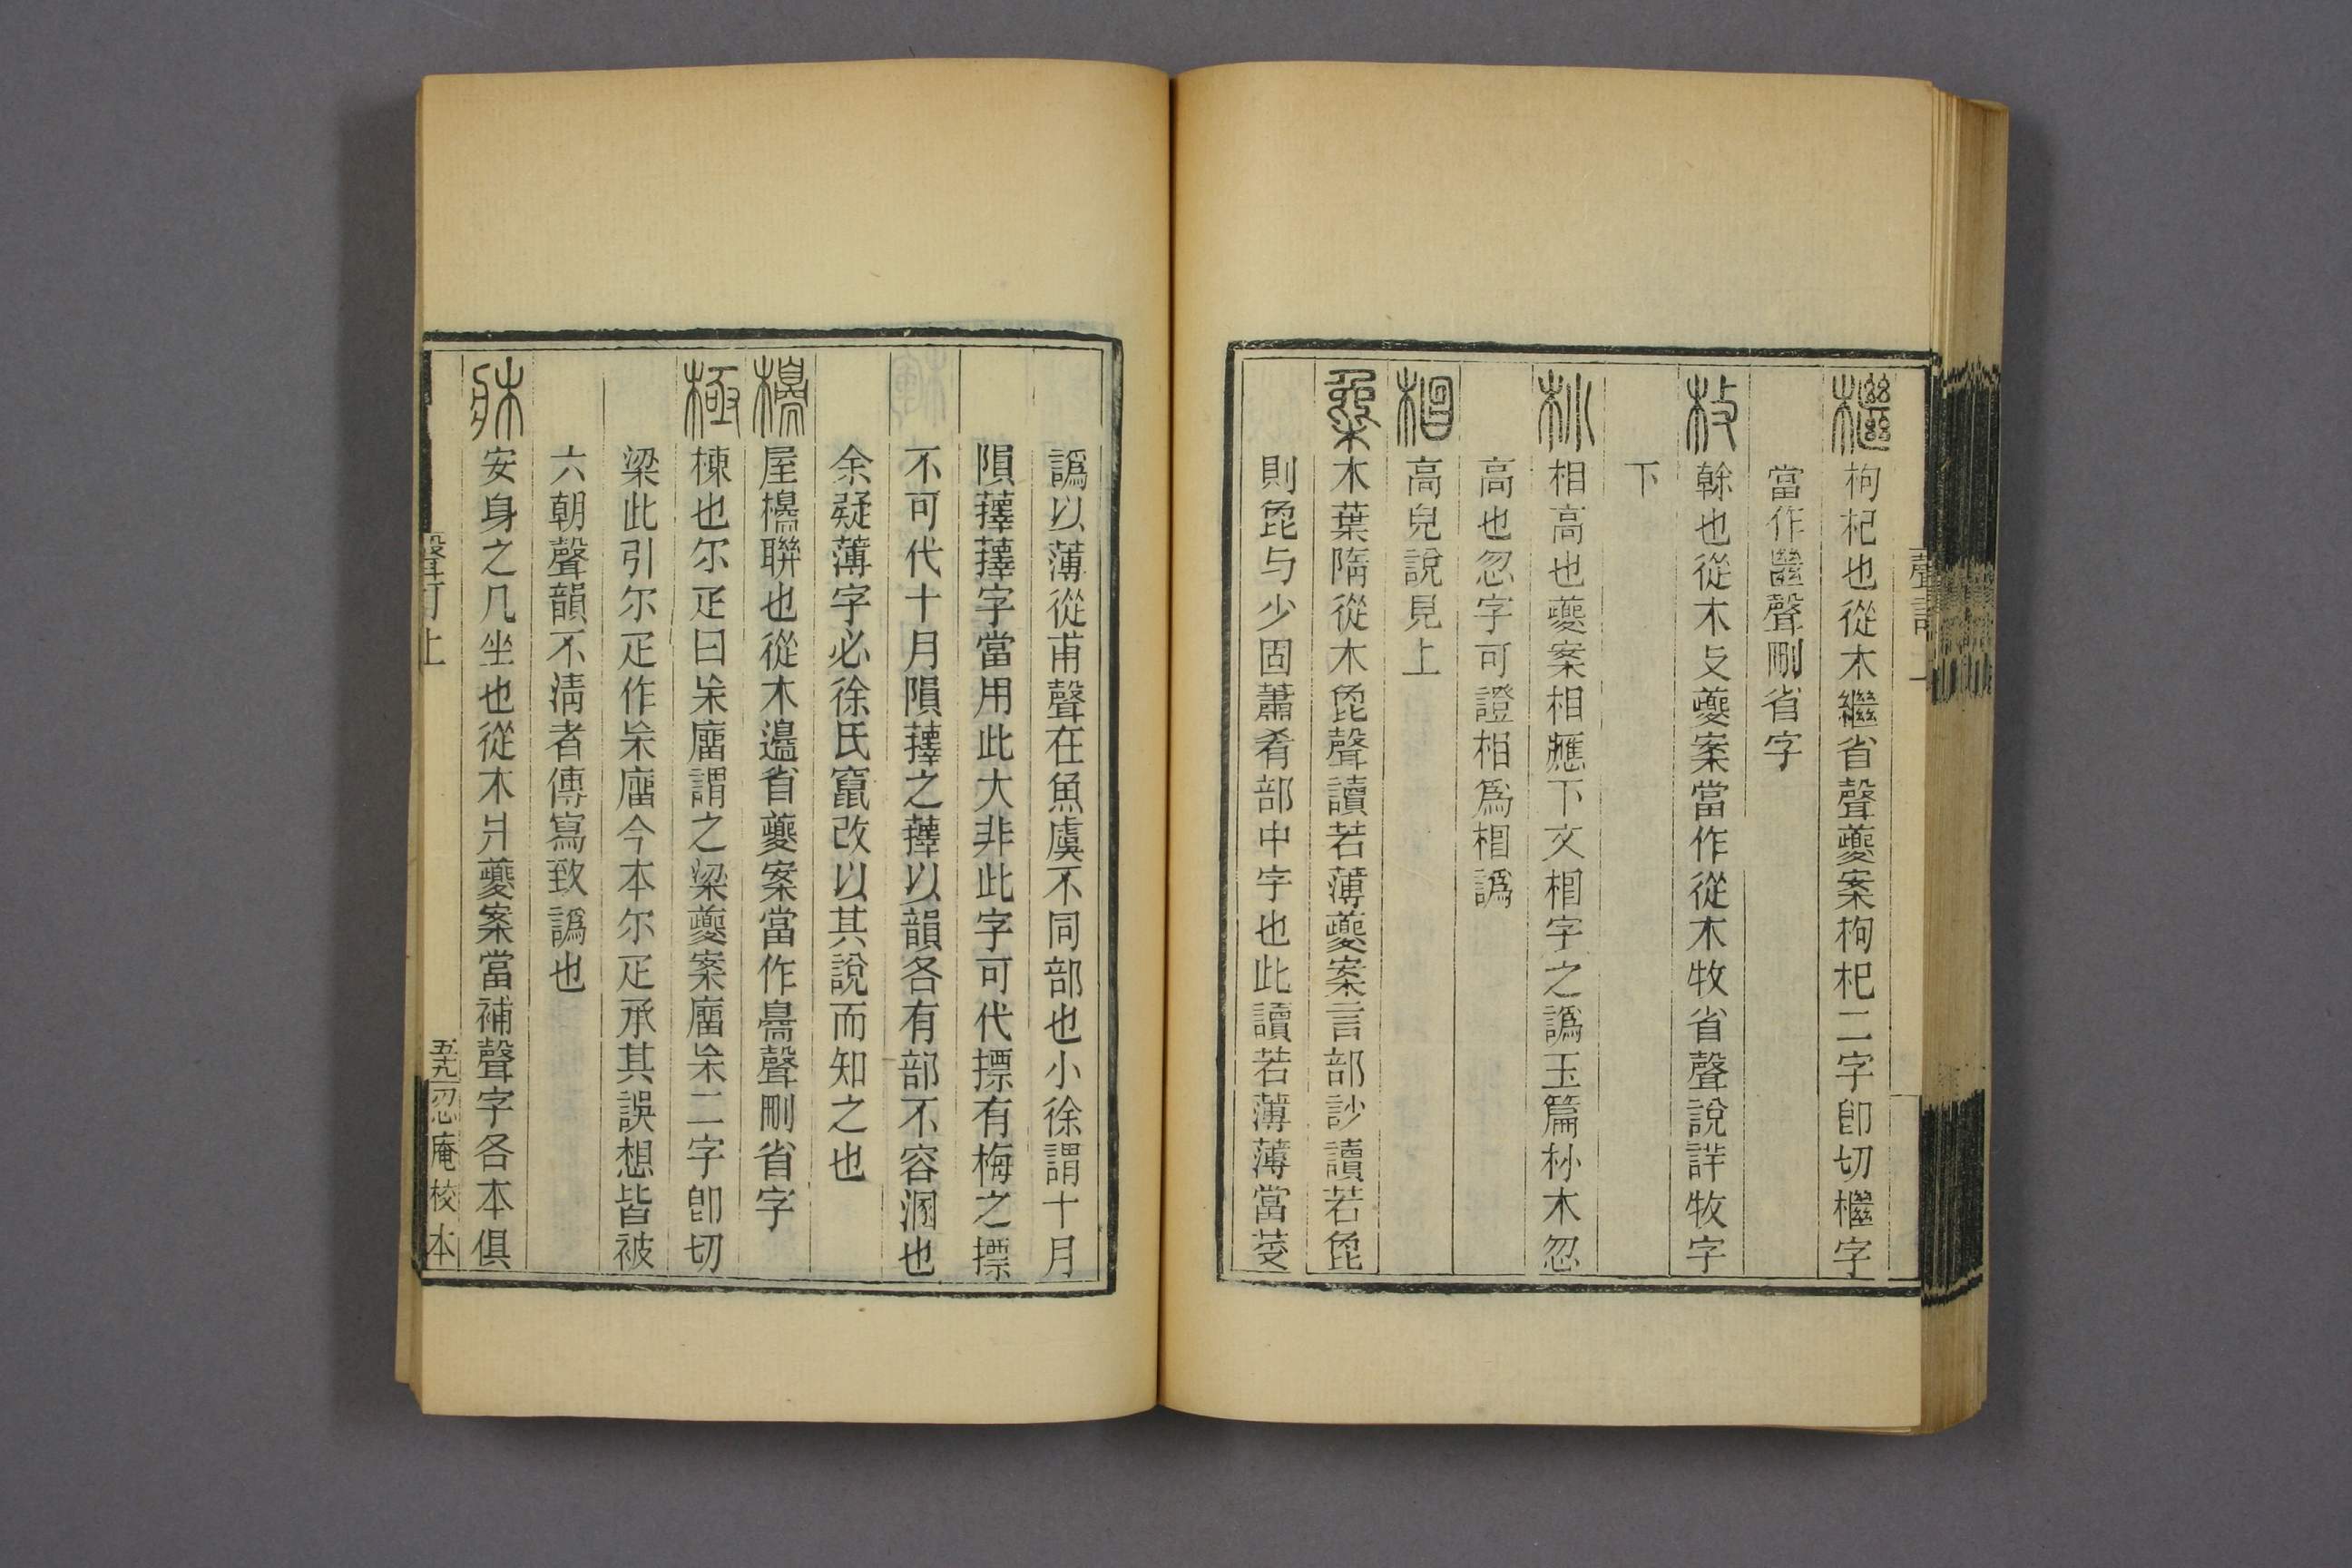 聲訂上
檵枸杞也從木繼省聲夔案枸杞二字卽切檵字
當作㡭聲刪省字
枚榦也從木攴夔案當作從木牧省聲說詳牧字
下
杪相高也夔案相應下文榋字之譌玉篇杪木忽
高也忽字可證相爲榋譌
榋高皃說見上
木葉隋從木㲋聲讀若薄夔案言部訬讀若㲋
則㲋与少固蕭肴部中字也此讀若薄薄當芰
譌以薄從甫聲在魚虞不同部也小徐謂十月
隕蘀蘀字當用此大非此字可代摽有梅之摽
不可代十月隕蘀之蘀以韻各有部不容溷也
余疑薄字必徐氏竄改以其說而知之也
櫋屋櫋聯也從木邊省夔案當作臱聲刪省字
極棟也尔疋曰杗廇謂之梁夔案廇杗二字卽切
梁此引尔疋作杗廇今本尔疋承其誤想皆被
六朝聲韻不淸者傳寫致譌也
牀安身之几坐也從木爿夔案當補聲字各本俱
聲訂上
五十九 忍庵校本